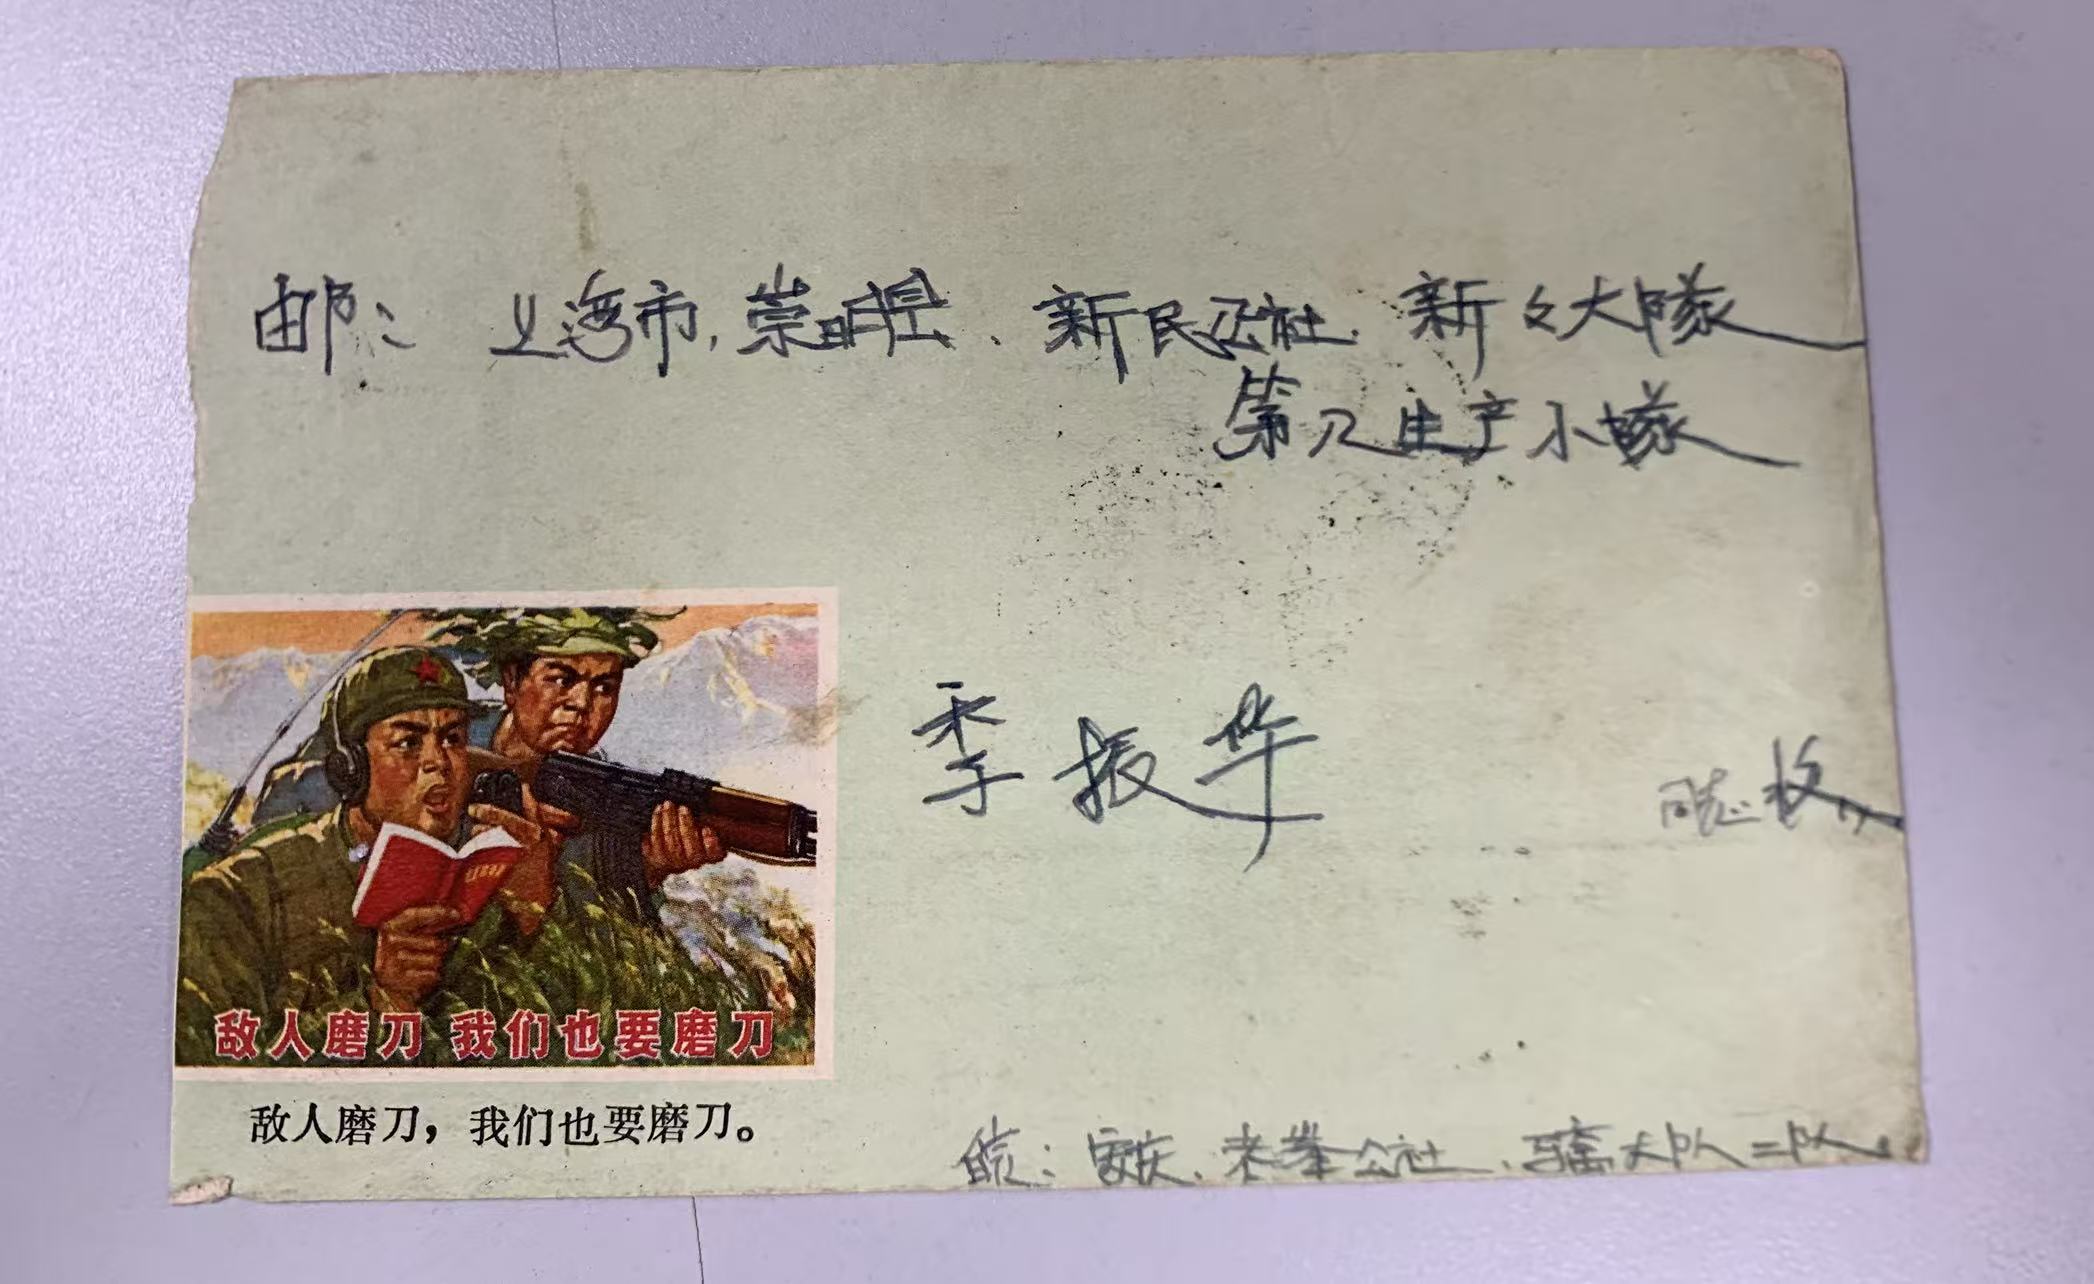 邮: 上海市, 崇明县、新民公社. 新々大隊
第八生产小隊
季振华 同志 收
敌人磨刀 我们也要磨刀
敌人磨刀，我们也要磨刀。
皖: 安庆. 公社. 大队二队.